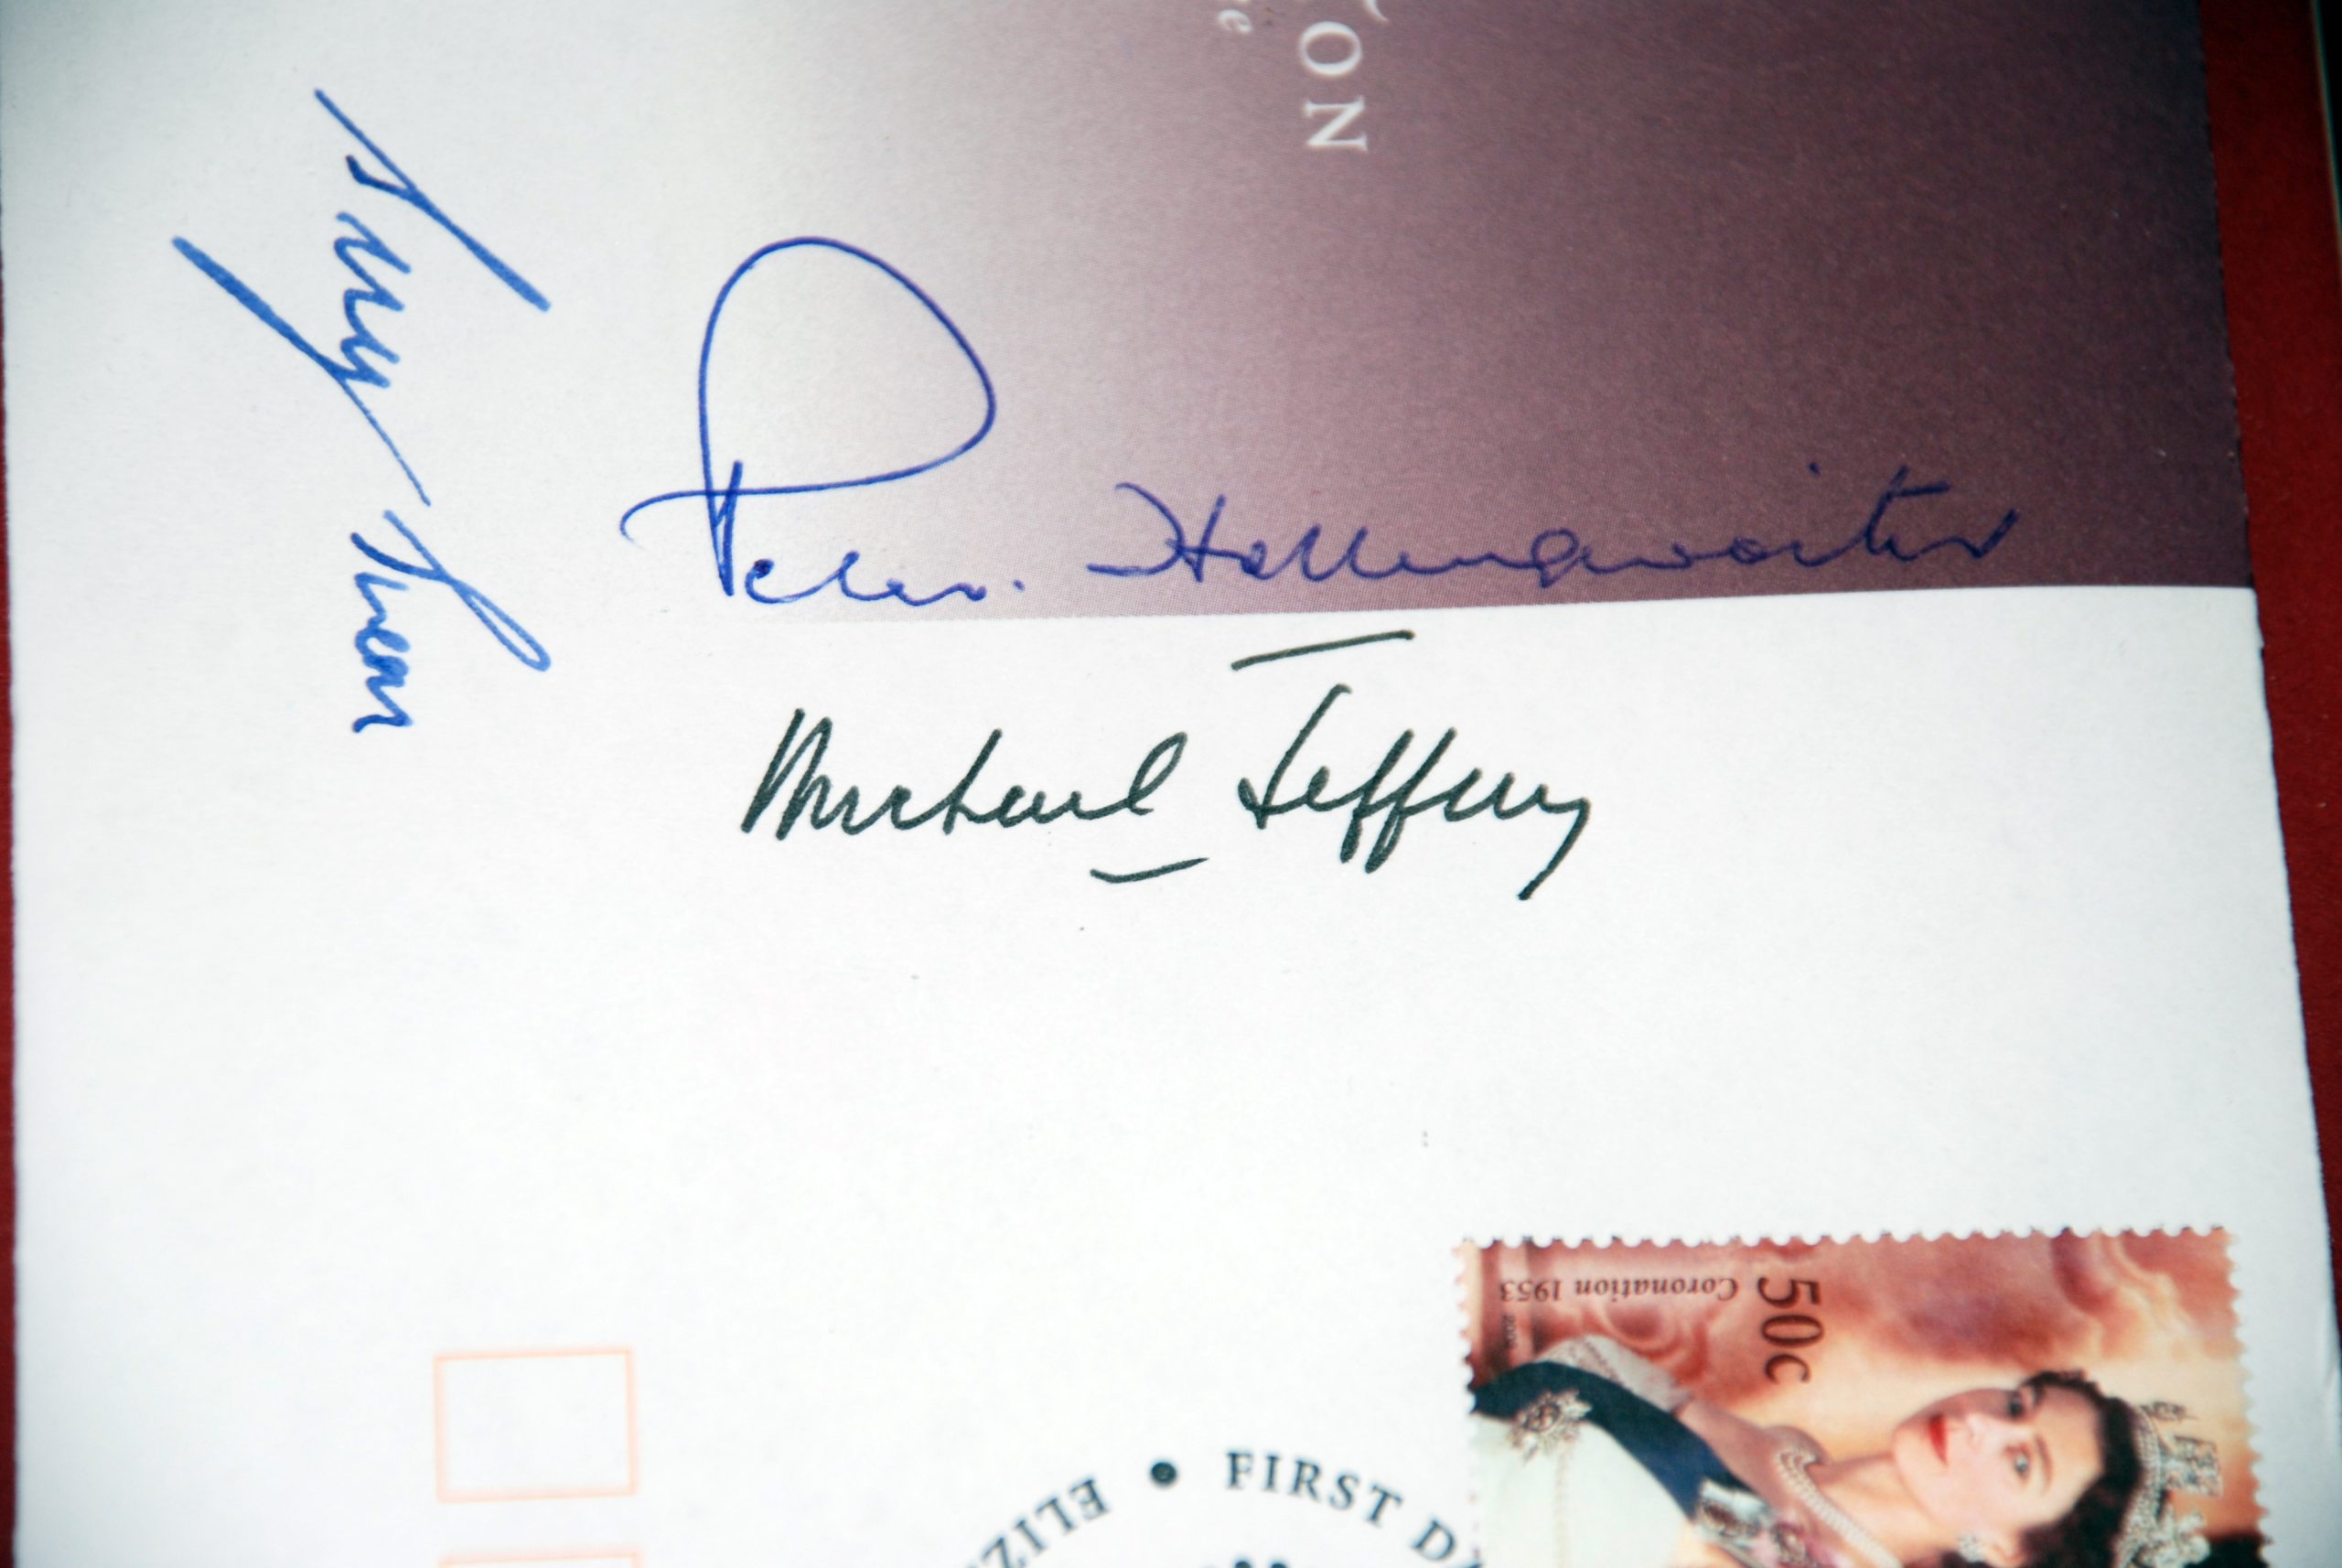 ON
Peter Hollingworth
Michael Jeffery
50c
Coronation 1953
ELIZ
• FIRST DA